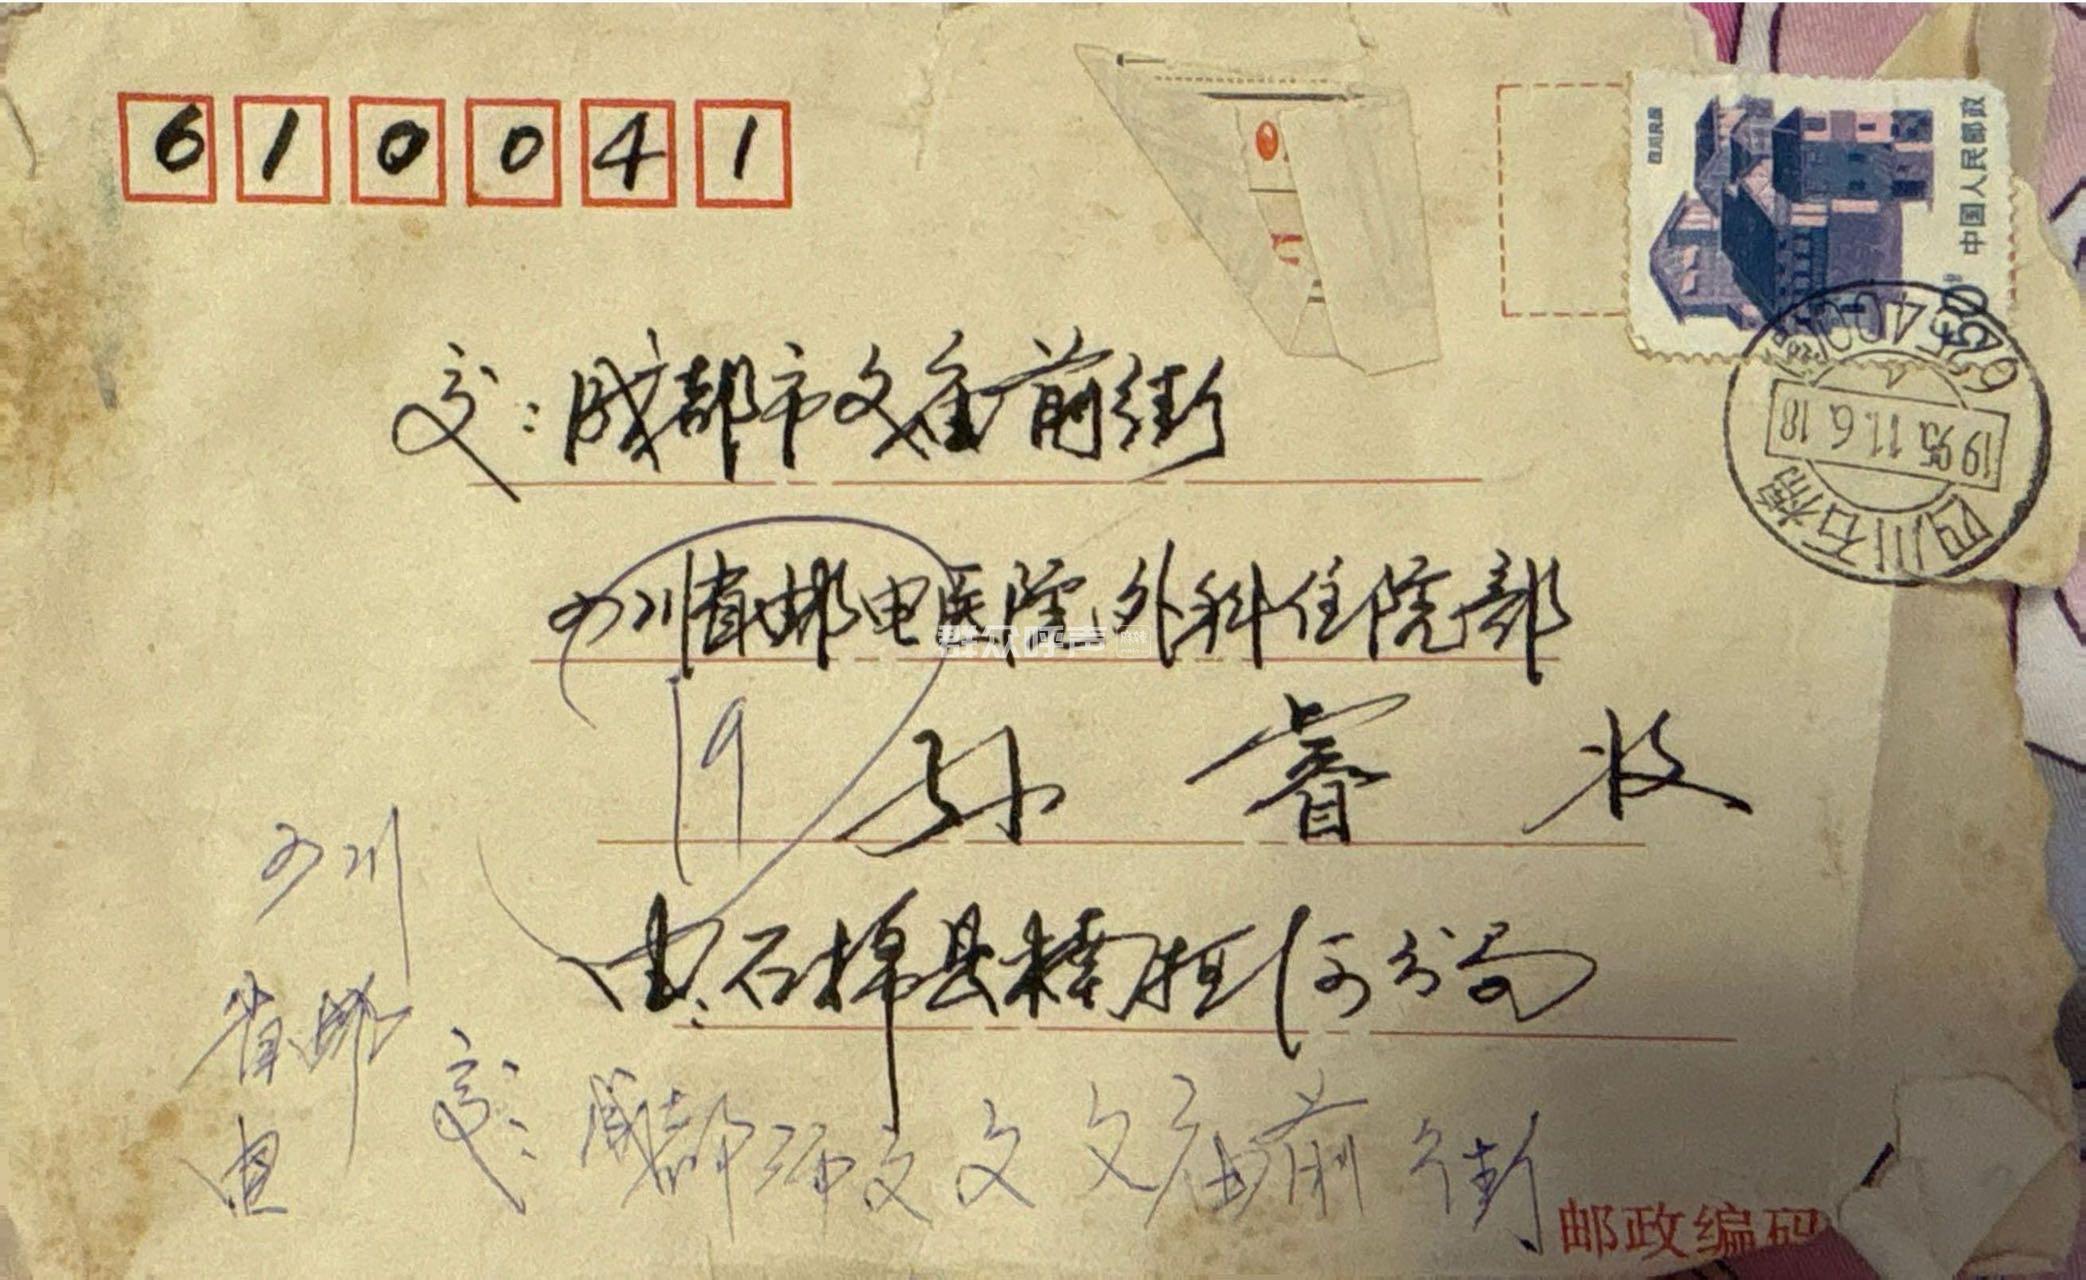 610041
中国人民邮政
四川民居
交：成都市文庙前街
四川石棉
1995.11.6.18
四川省邮电医院外科住院部
群众呼声
19
孙 睿 收
由：石棉县楠桠河分局
四川
省邮
电
交：成都 文文文庙前街
邮政编码